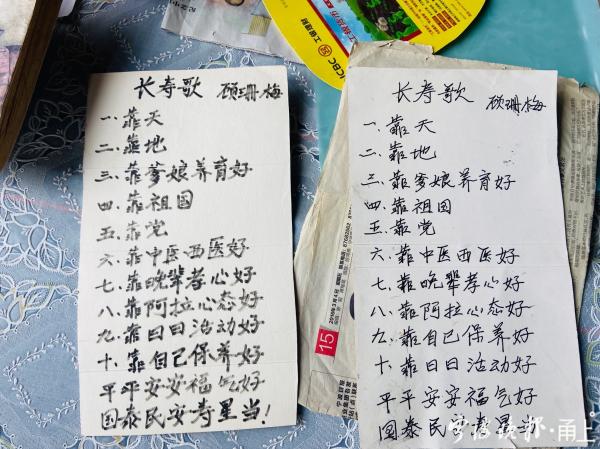 长寿歌 顾珊梅
一.靠天
二.靠地
三.靠爹娘养育好
四.靠祖国
五.靠党
六.靠中医西医好
七.靠晚辈孝心好
八.靠阿拉心态好
九.靠日日活动好
十.靠自己保养好
平平安安福气好
国泰民安寿星当!
长寿歌 顾珊梅
一.靠天
二.靠地
三.靠爹娘养育好
四.靠祖国
五.靠党
六.靠中医西医好
七.靠晚辈孝心好
八.靠阿拉心态好
九.靠自己保养好
十.靠日日活动好
平平安安福气好
国泰民安寿星当
ICBC 工银理财
15
宁波晚报·甬上